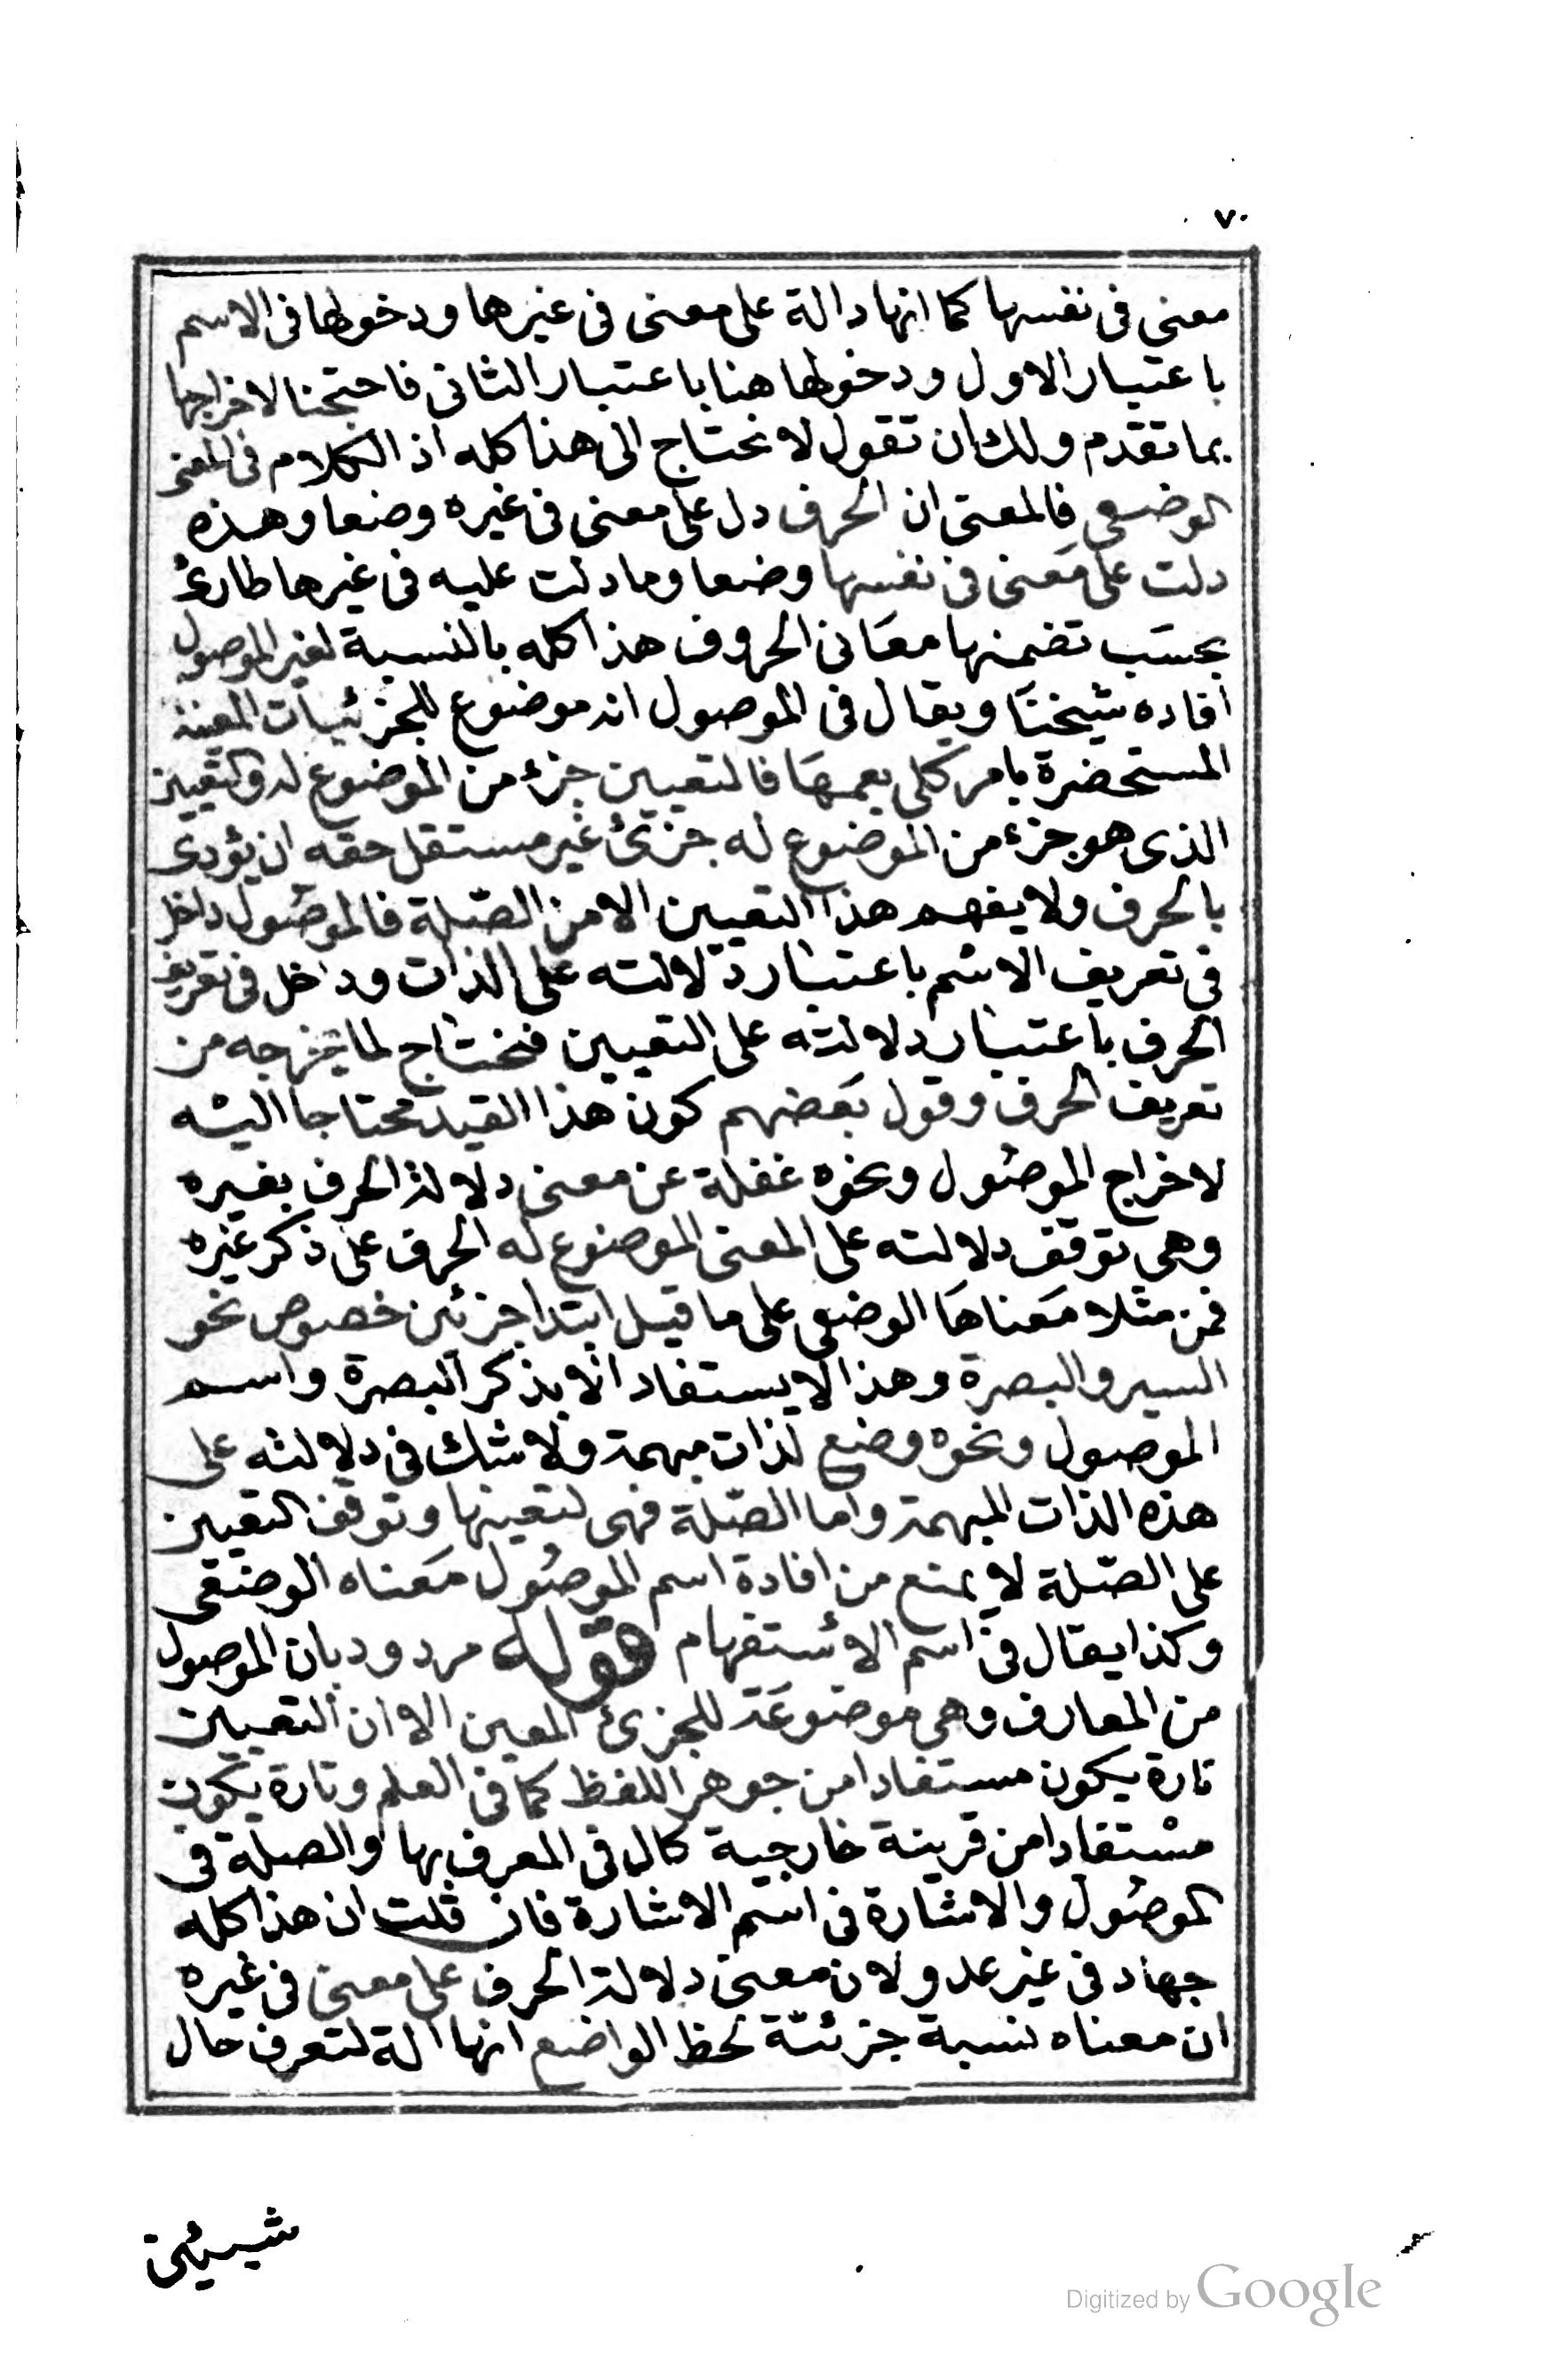 ٧٠
معنى فى نفسها كما انها دالة على معنى فى غيرها ودخولها فى الاسم
باعتبار الاول ودخولها هنا باعتبار الثانى فاحتجنا لاخراجها
بما تقدم ولك ان تقول لا نحتاج الى هذا كله اذ الكلام فى المعنى
الوضعى فالمعنى ان الحرف دل على معنى فى غيره وضعا وهذه
دلت على معنى فى نفسها وضعا وما دلت عليه فى غيرها طارئ
بحسَب تضمنها معَانى الحروف هذا كله بالنسبة لغير الموصول
افاده شيخنَا ويقال فى الموصول انه موضوع للجزئيات المعينة
المستحضرة بامر كلى يعمهَا فالتعيين جزء من الموضوع له والتعيين
الذى هو جزء من الموضوع له جزئ غير مستقل حقه ان يؤدى
بالحرف ولا يفهم هذا التعيين الا من الصّلة فالموصُول داخل
فى تعريف الاسْم باعتبار دلالته على الذات وداخل فى تعريف
الحرف باعتبار دلالته على التعيين فنحتاج لما يخرجه من
تعريف الحرف وقول بَعضهم كون هذا القيد محتاجا اليْه
لاخراج الموصُول ونحوه غفلة عن معنى دلالة الحرف بغيره
وهى توقف دلالته على المعنى الموضوع له الحرف على ذكر غيره
فمن مثلا مَعناهَا الوضعى على ما قيل ابتدا جزئى خصوص نحو
السير والبصرة وهذا لا يستفاد الا بذكر البصرة واسم
الموصول ونحوه وضع لذات مبهمة ولا شك فى دلالته على
هذه الذات المبهمة واما الصّلة فهى لتعينها وتوقف التعيين
على الصّلة لا يمنع من افادة اسم الموصُول مَعناه الوضعى
وكذا يقال فى اسم الاسْتفهام قوله مردود بان الموصول
من المعارف وهى موضوعَة للجزئ المعين الا ان التعيين
تارة يكون مستفادا من جوهر اللفظ كما فى العلم وتارة يكون
مسْتفادا من قرينة خارجية كال فى المعرف بها والصلة فى
الموصُول والاشارة فى اسم الاشارة فان قلت ان هذا كله
جهاد فى غير عدو لان معنى دلالة الحرف على معنى فى غيره
ان معناه نسبة جزئيّة لحظ الواضع انها الة لتعرف حال
شيئين
Digitized by Google